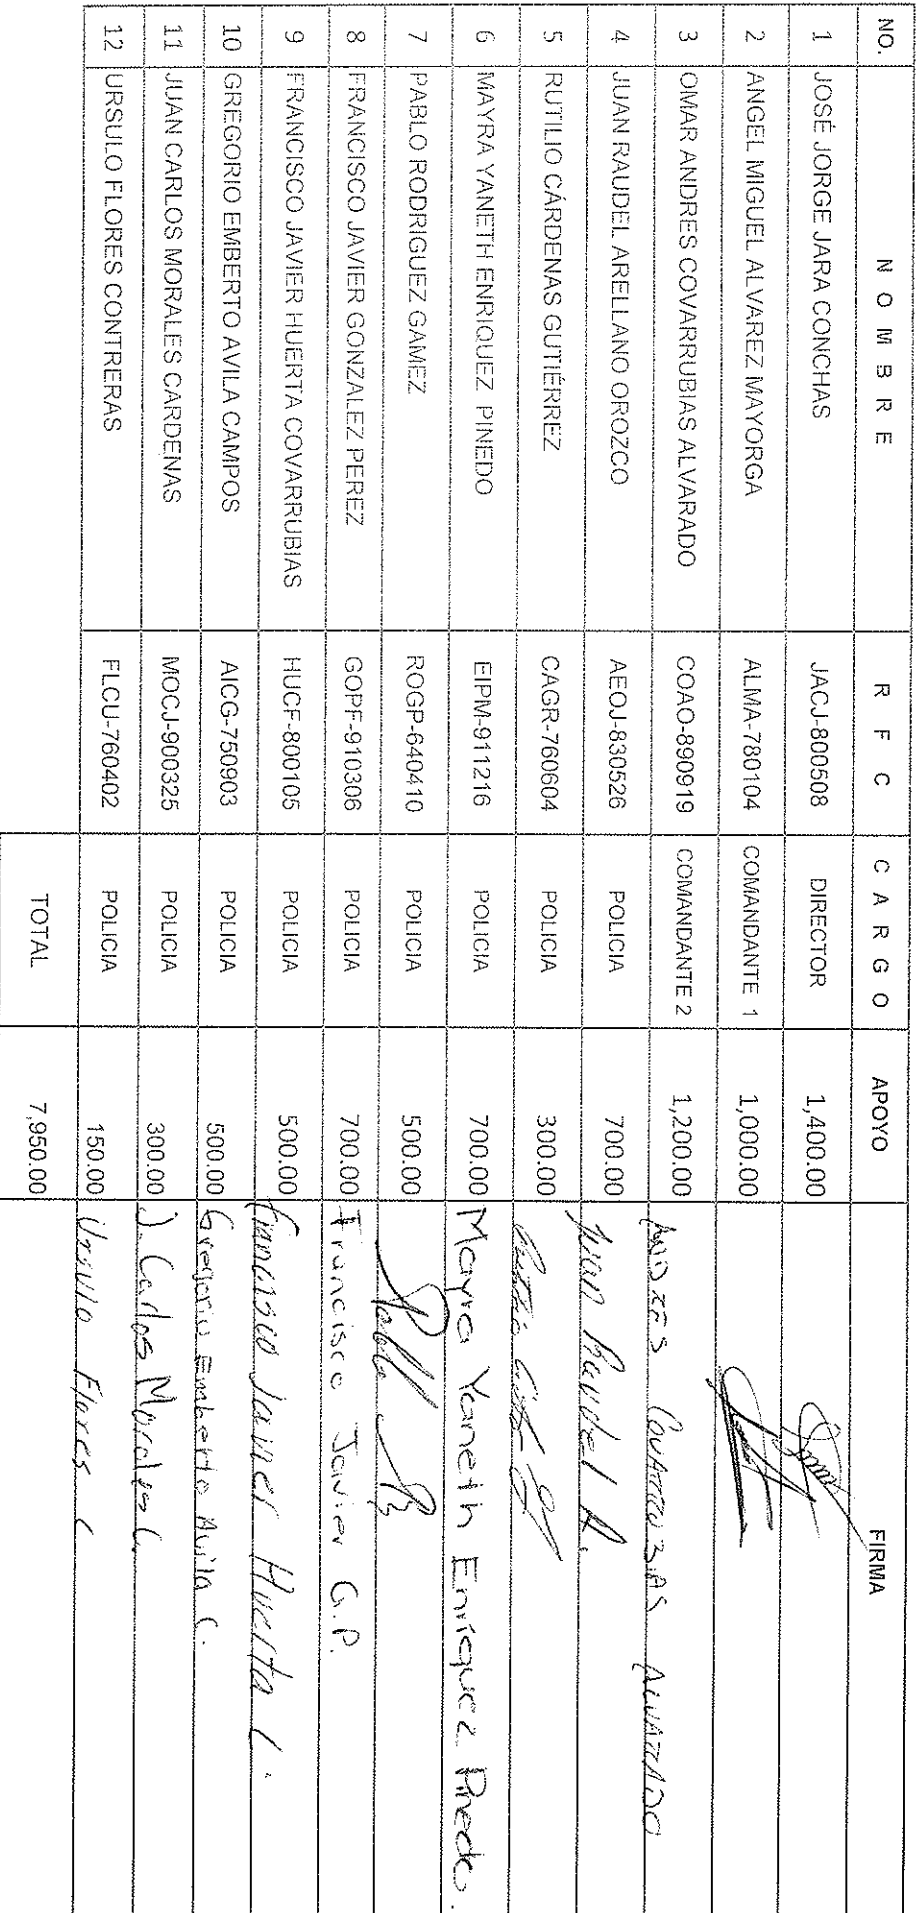 NO. N O M B R E R F C C A R G O APOYO FIRMA
1 JOSÉ JORGE JARA CONCHAS JACJ-800508 DIRECTOR 1,400.00
2 ANGEL MIGUEL ALVAREZ MAYORGA ALMA-780104 COMANDANTE 1 1,000.00
3 OMAR ANDRES COVARRUBIAS ALVARADO COAO-890919 COMANDANTE 2 1,200.00
4 JUAN RAUDEL ARELLANO OROZCO AEOJ-830526 POLICIA 700.00 Juan Raudel A.
5 RUTILIO CÁRDENAS GUTIÉRREZ CAGR-760604 POLICIA 300.00
6 MAYRA YANETH ENRIQUEZ PINEDO EIPM-911216 POLICIA 700.00 Mayra Yaneth Enríquez Pinedo.
7 PABLO RODRIGUEZ GAMEZ ROGP-640410 POLICIA 500.00 Pablo
8 FRANCISCO JAVIER GONZALEZ PEREZ GOPF-910306 POLICIA 700.00 Francisco Javier G.P.
9 FRANCISCO JAVIER HUERTA COVARRUBIAS HUCF-800105 POLICIA 500.00 Francisco Javier Huerta C.
10 GREGORIO EMBERTO AVILA CAMPOS AICG-750903 POLICIA 500.00 Gregorio Emberto Avila C.
11 JUAN CARLOS MORALES CARDENAS MOCJ-900325 POLICIA 300.00 J. Carlos Morales C.
12 URSULO FLORES CONTRERAS FLCU-760402 POLICIA 150.00 Ursulo Flores C
TOTAL 7,950.00